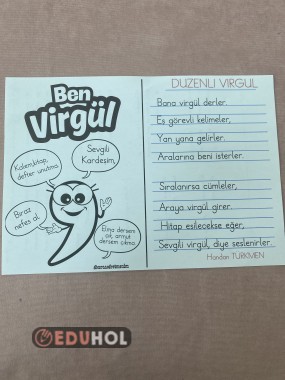 Ben
Virgül
Sevgili
Kardeşim,
Kalem,kitap,
defter unutma.
Biraz
nefes al.
Elma dersem
çık, armut
dersem çıkma.
DÜZENLİ VİRGÜL
Bana virgül derler.
Eş görevli kelimeler,
Yan yana gelirler.
Aralarına beni isterler.
Sıralanırsa cümleler,
Araya virgül girer.
Hitap edilecekse eğer,
Sevgili virgül, diye seslenirler.
Handan TÜRKMEN
EDUHOL